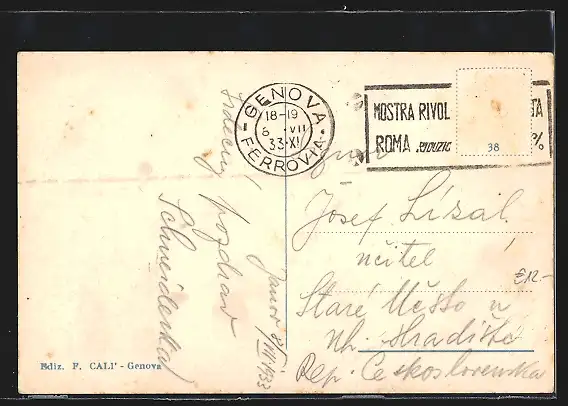 GENOVA
18-19
6 . VII
33·XI
FERROVIA
MOSTRA RIVOL TA
ROMA .RIDUZIC %
38
Srdečný pozdrav
Schneiderka
Janov 8/VII.1933
Pan
Josef Lízal
učitel
€12-
Staré Město u
Uh. Hradiště
Rep. Československa
Ediz. F. CALI' - Genova